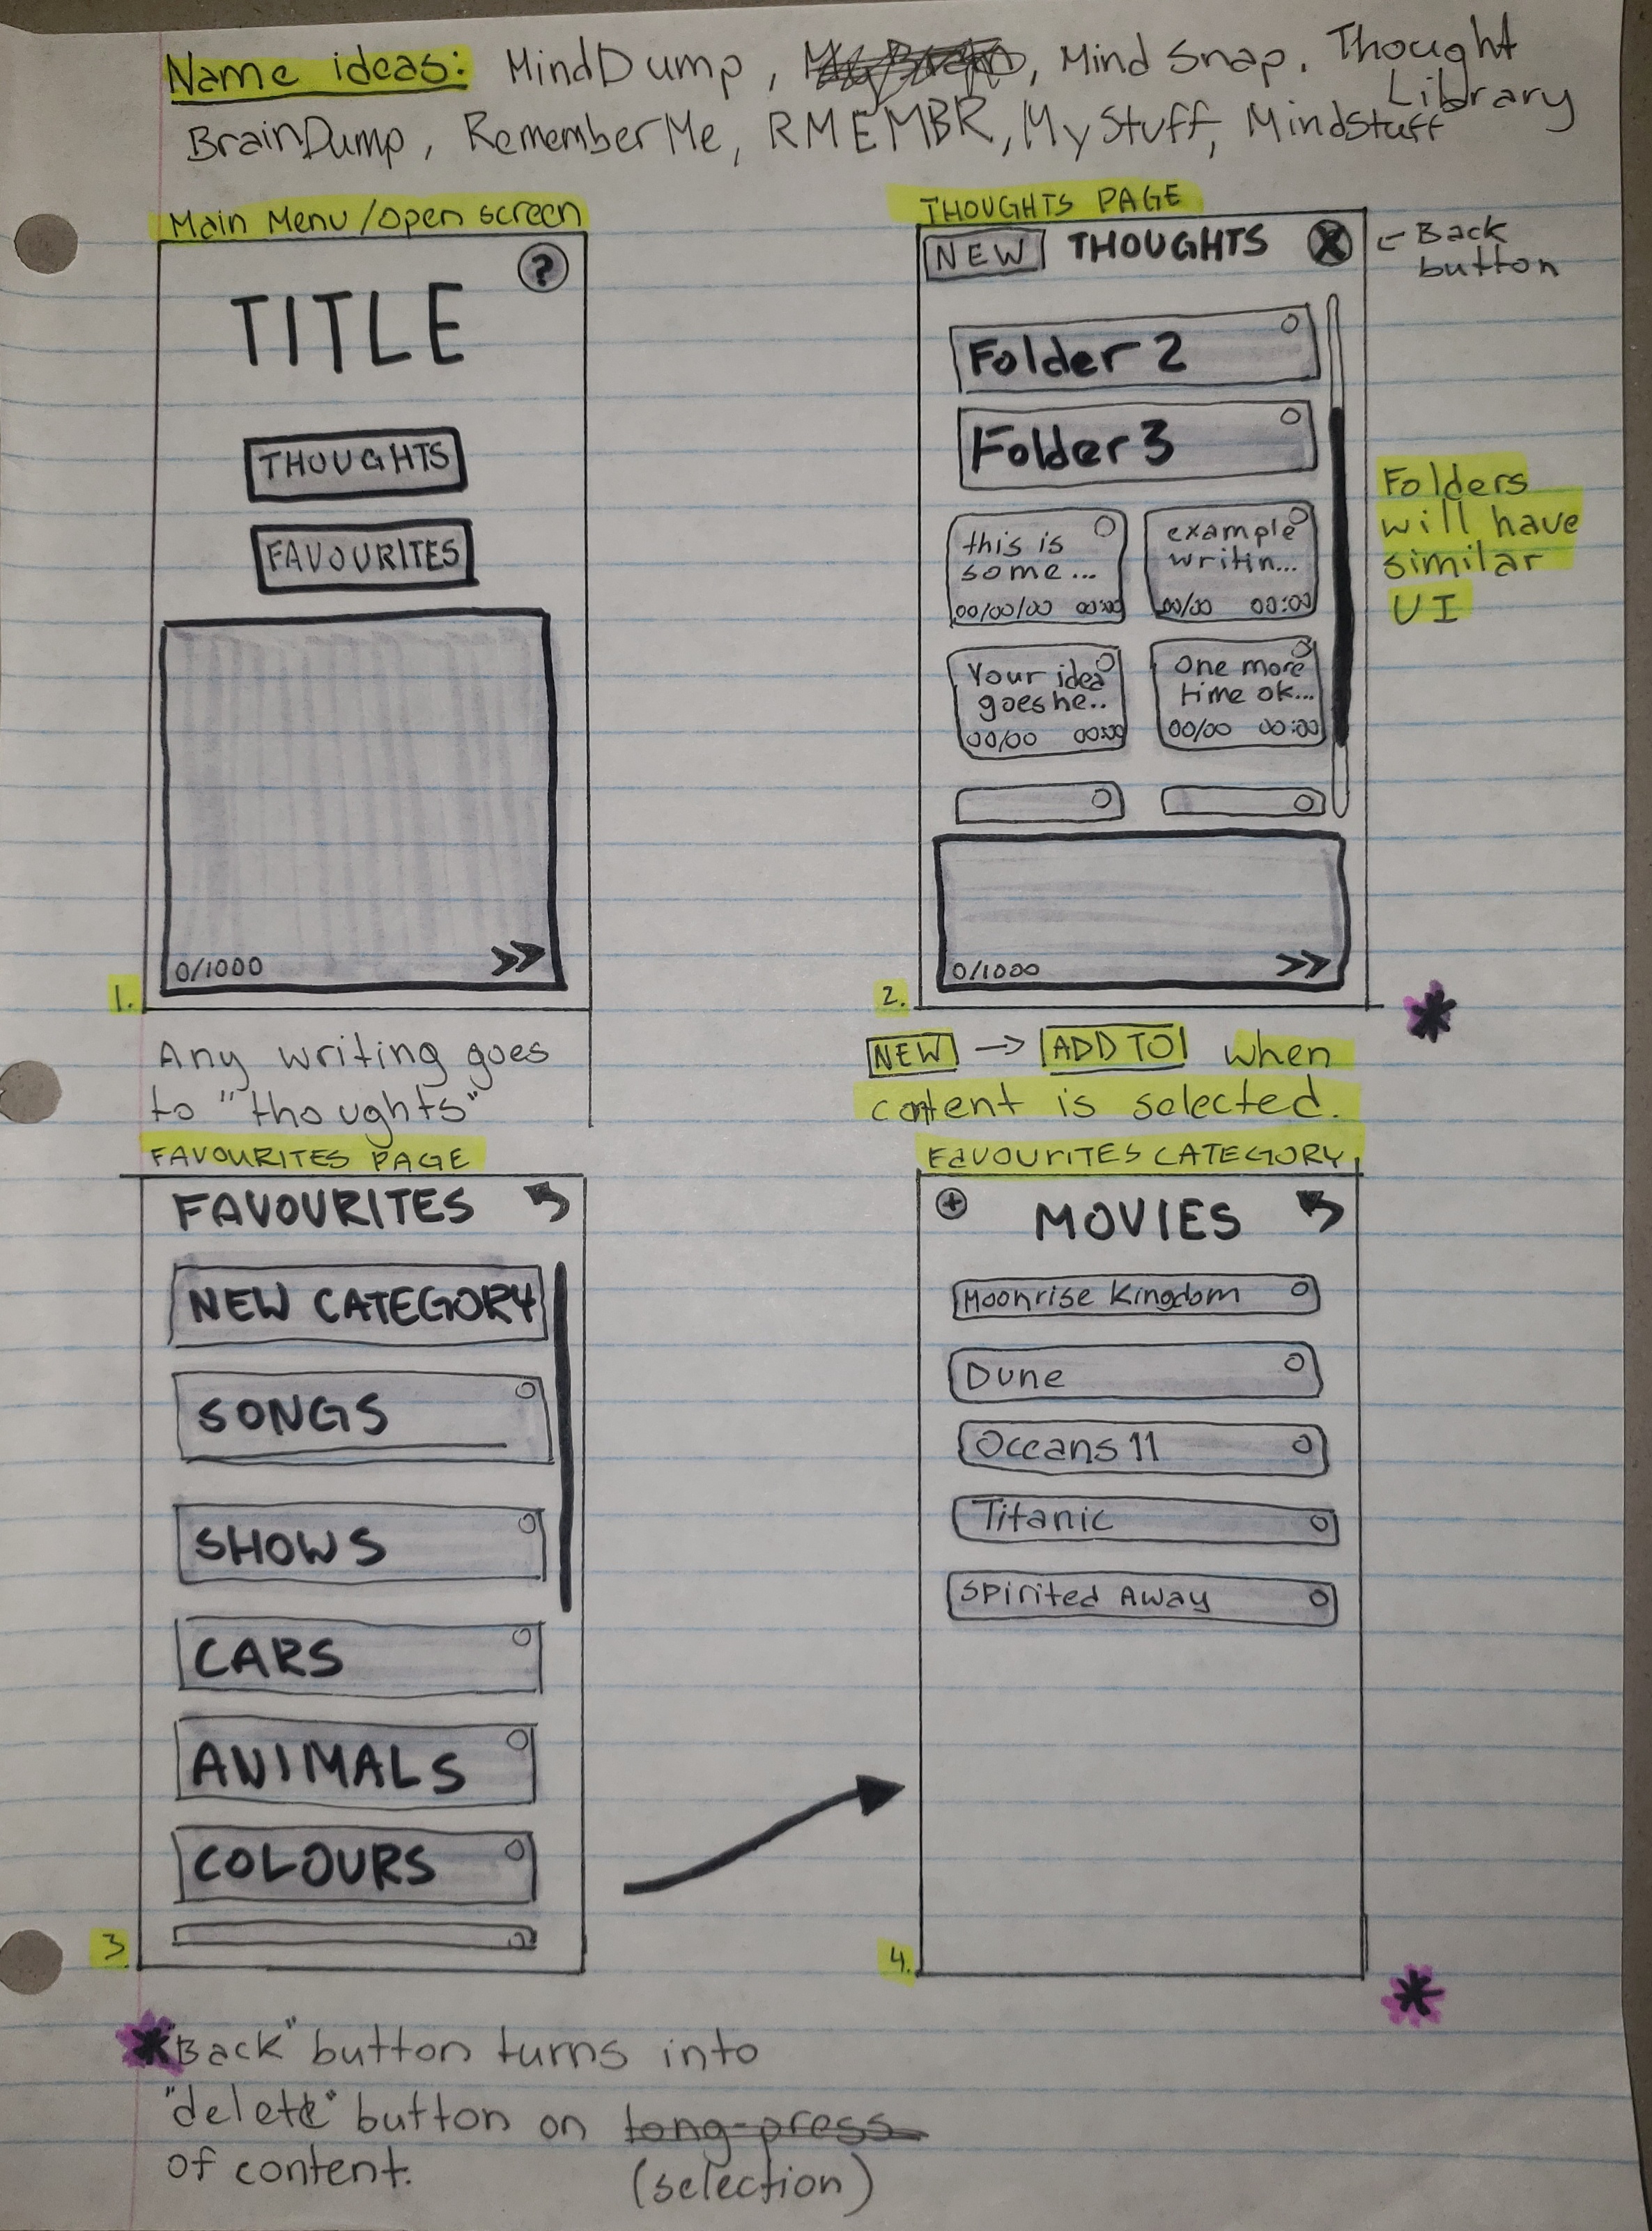 Name ideas: MindDump, My Brain, Mind Snap. Thought Library
BrainDump, RememberMe, RMEMBR, MyStuff, MindStuff
Main Menu/open screen
?
TITLE
THOUGHTS
FAVOURITES
0/1000 >>
1.
Any writing goes
to "thoughts"
THOUGHTS PAGE
NEW THOUGHTS X
← Back
button
Folder 2
Folder 3
Folders
will have
similar
UI
this is
some...
00/00/00 00:00
example
writin...
00/00 00:00
Your idea
goes he..
00/00 00:00
One more
time ok...
00/00 00:00
0/1000 >>
2.
*
NEW → ADD TO when
content is selected.
FAVOURITES PAGE
FAVOURITES
NEW CATEGORY
SONGS
SHOWS
CARS
ANIMALS
COLOURS
3
FAVOURITES CATEGORY
+ MOVIES
Moonrise Kingdom
Dune
Oceans 11
Titanic
Spirited Away
4.
*
*"Back" button turns into
"delete" button on long-press
of content. (selection)